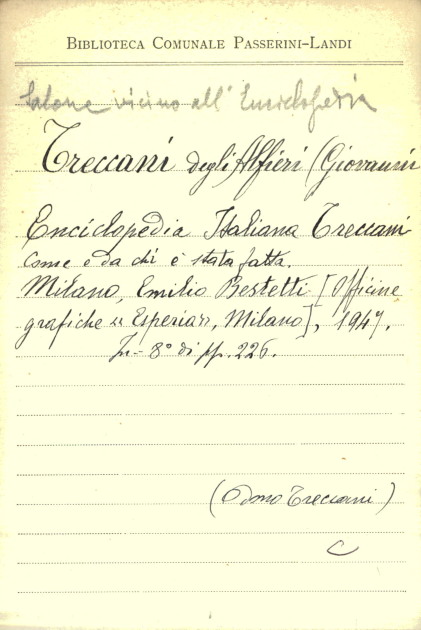 BIBLIOTECA COMUNALE PASSERINI-LANDI
Salone vicino all'Enciclopedia
Treccani degli Alfieri (Giovanni
Enciclopedia Italiana Treccani
Come e da chi è stata fatta.
Milano, Emilio Bestetti [Officine
grafiche «Esperia», Milano], 1947.
In-8° di pp. 226.
(Dono Treccani)
C